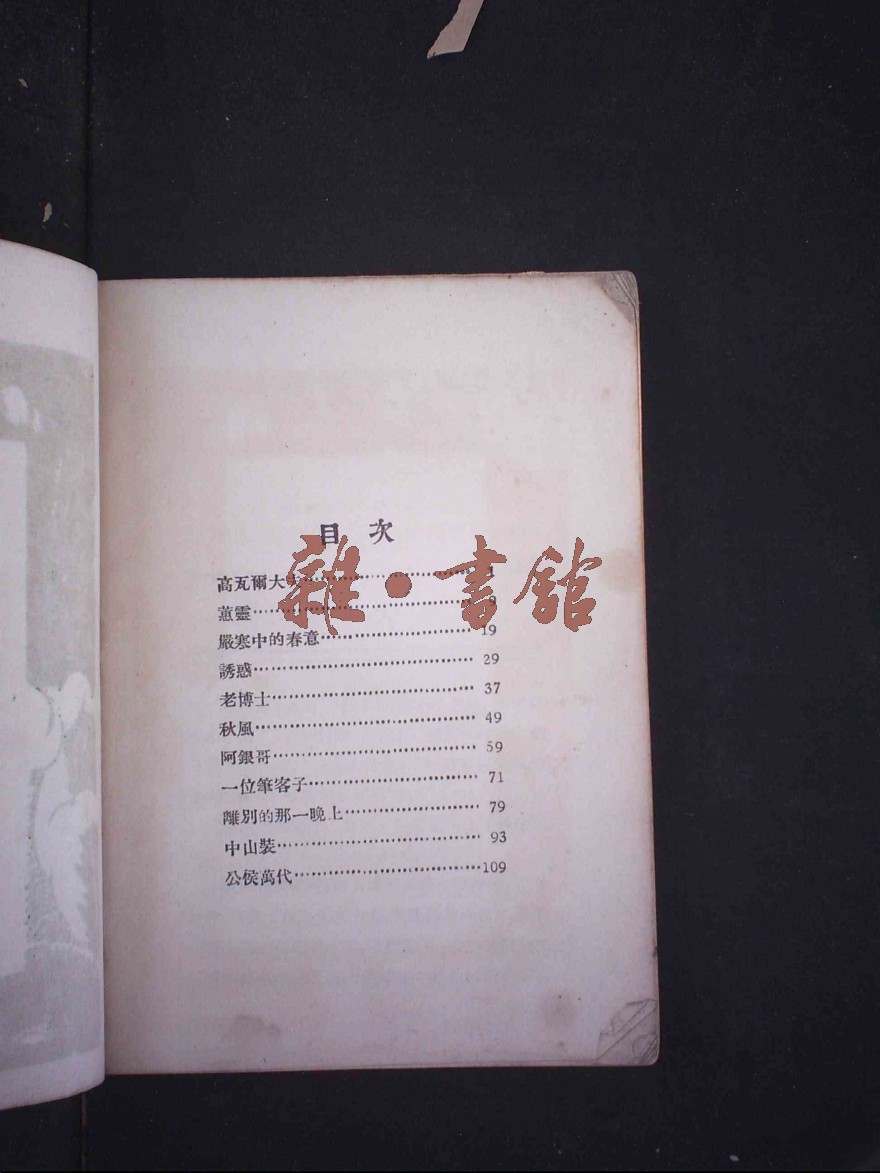 目 次
高瓦爾大夫……………………1
蕙靈……………………………9
嚴寒中的春意…………………19
誘惑……………………………29
老博士…………………………37
秋風……………………………49
阿銀哥…………………………59
一位筆客子……………………71
離別的那一晚上………………79
中山裝…………………………93
公侯萬代………………………109
雜·書館